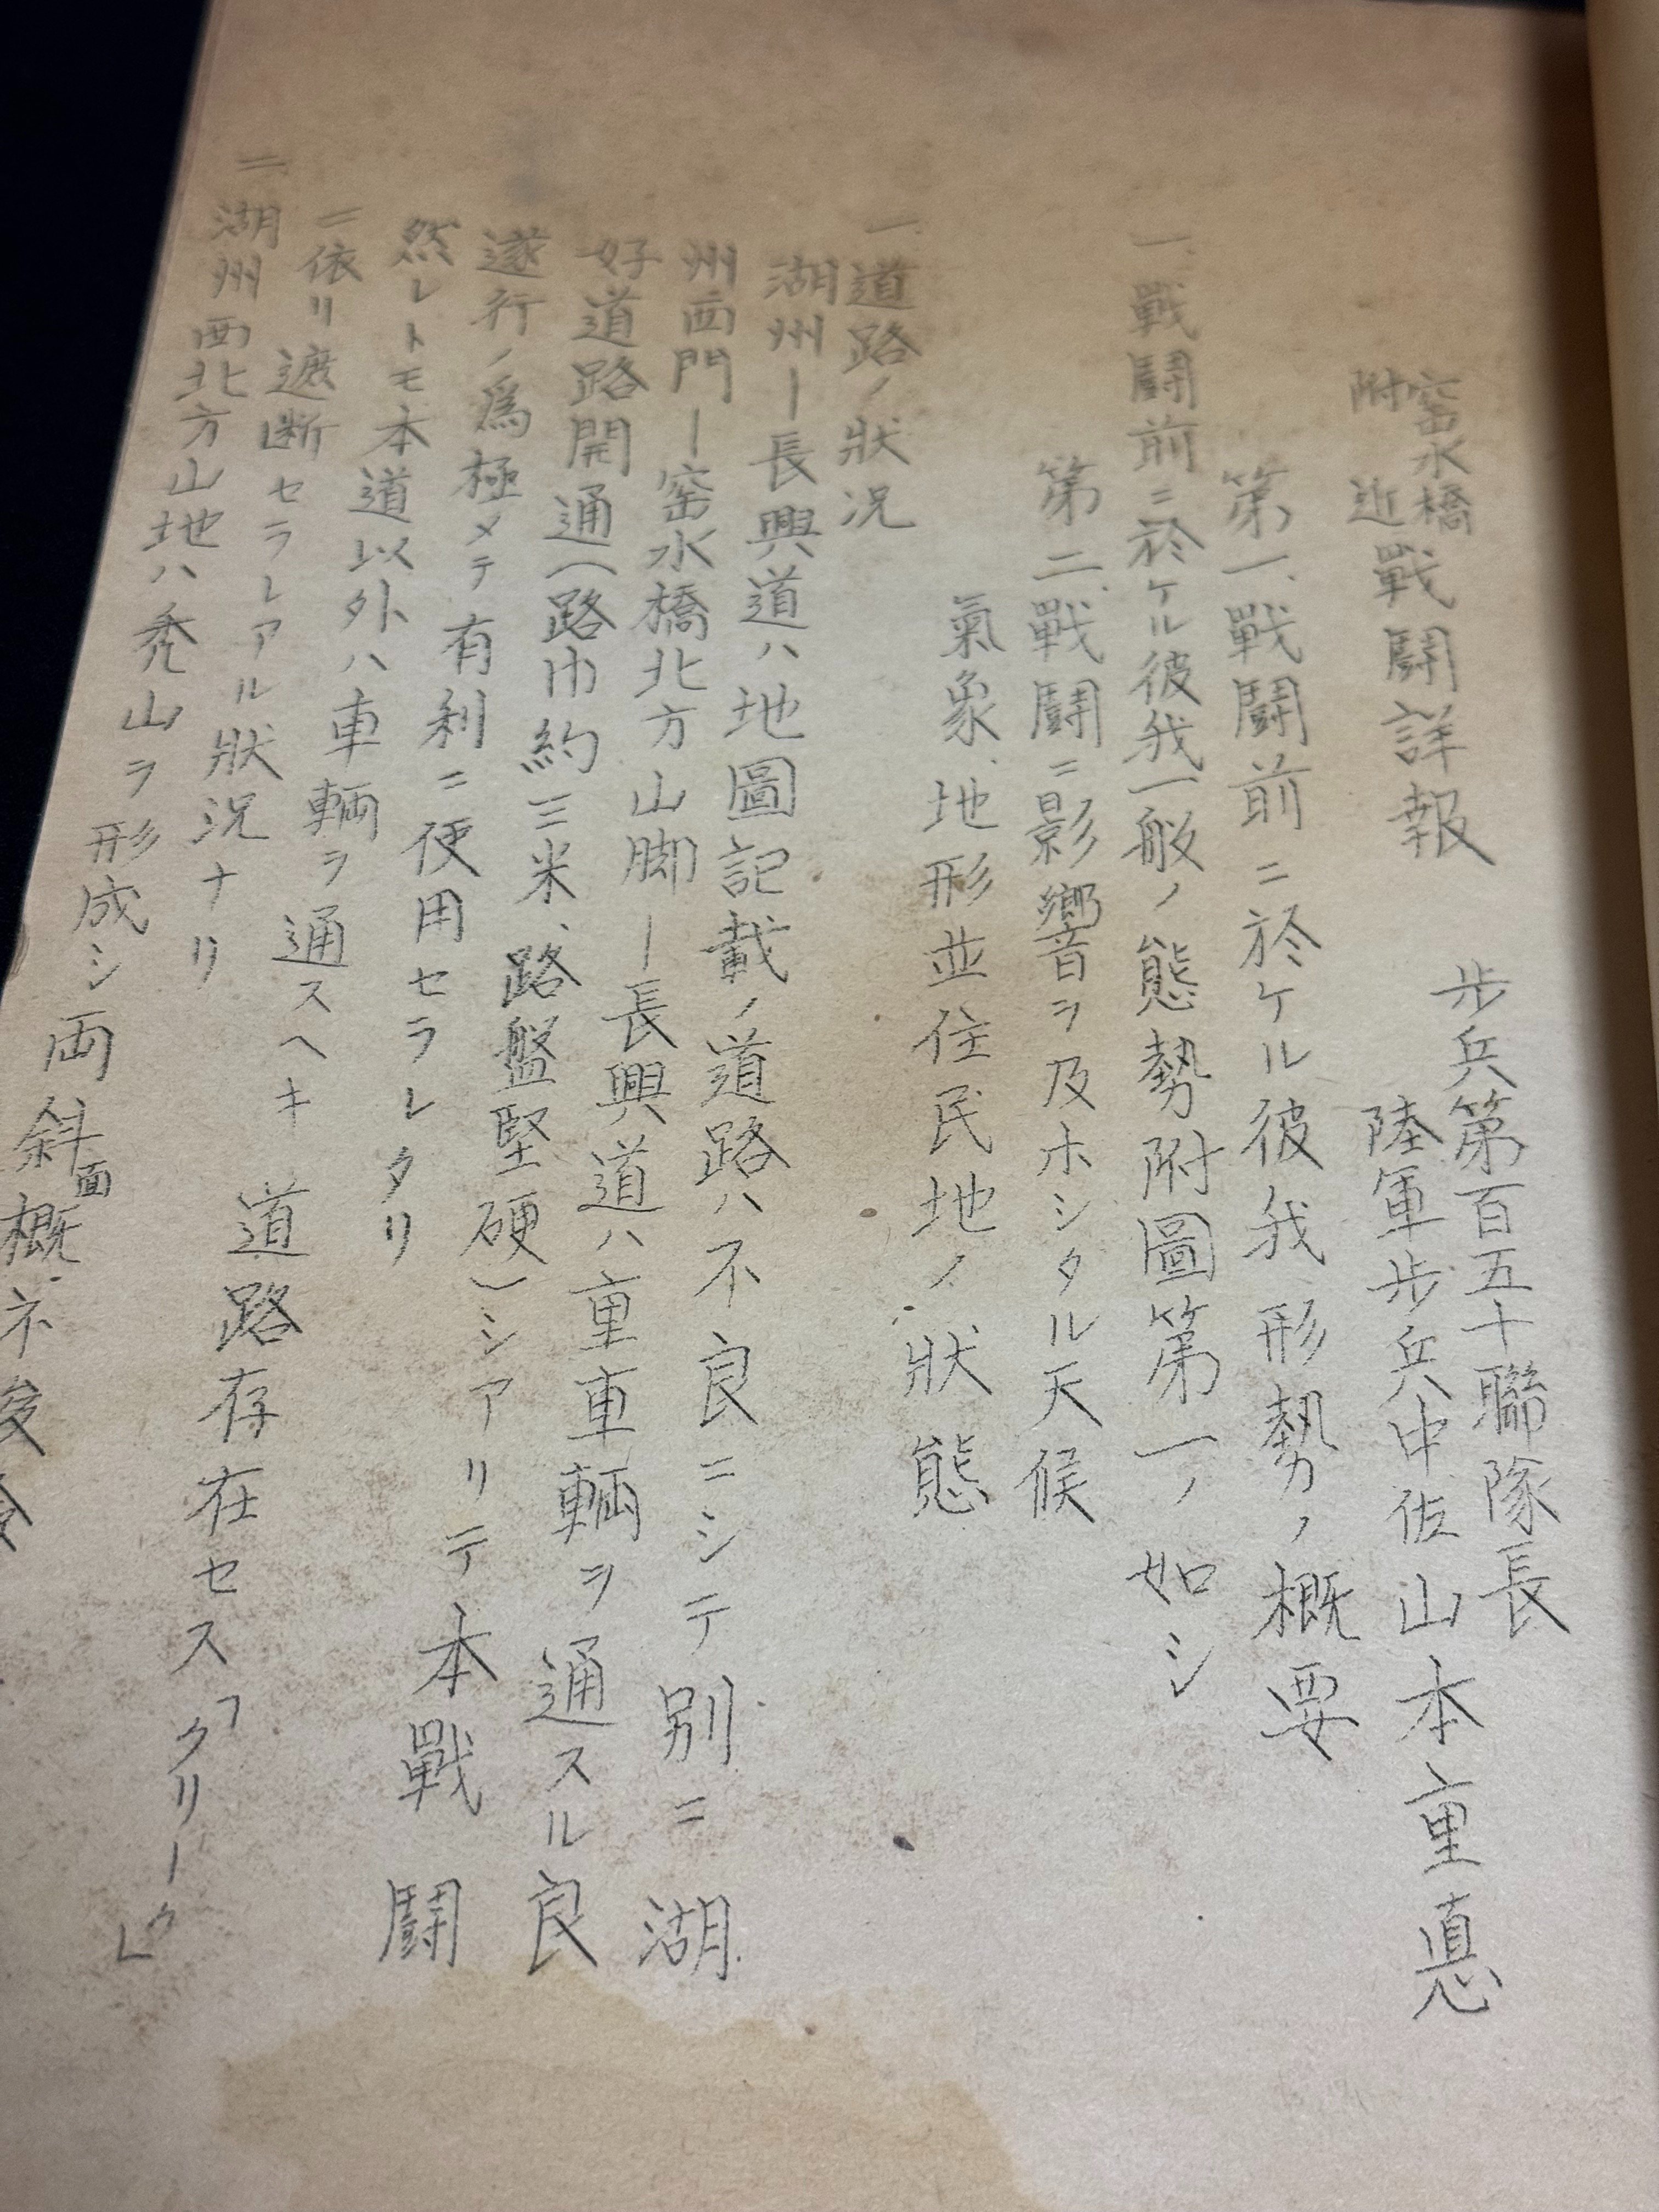 窑水橋
附近戰鬪詳報
歩兵第百五十聯隊長
陸軍歩兵中佐山本重悳
第一、戰鬪前ニ於ケル彼我形勢ノ概要
一、戰鬪前ニ於ケル彼我一般ノ態勢附圖第一ノ如シ
第二、戰鬪ニ影響ヲ及ホシタル天候
氣象、地形並住民地ノ狀態
一、道路ノ狀況
湖州ー長興道ハ地圖記載ノ道路ハ不良ニシテ別ニ湖
州西門ー窑水橋北方山脚ー長興道ハ重車輌ヲ通スル良
好道路開通(路巾約三米、路盤堅硬)シアリテ本戰鬪
遂行ノ爲極メテ有利ニ使用セラレタリ
然レトモ本道以外ハ車輌ヲ通スヘキ道路存在セス「クリーク」
ニ依リ遮断セラレアル狀況ナリ
二、湖州西北方山地ハ禿山ヲ形成シ両斜面概ネ